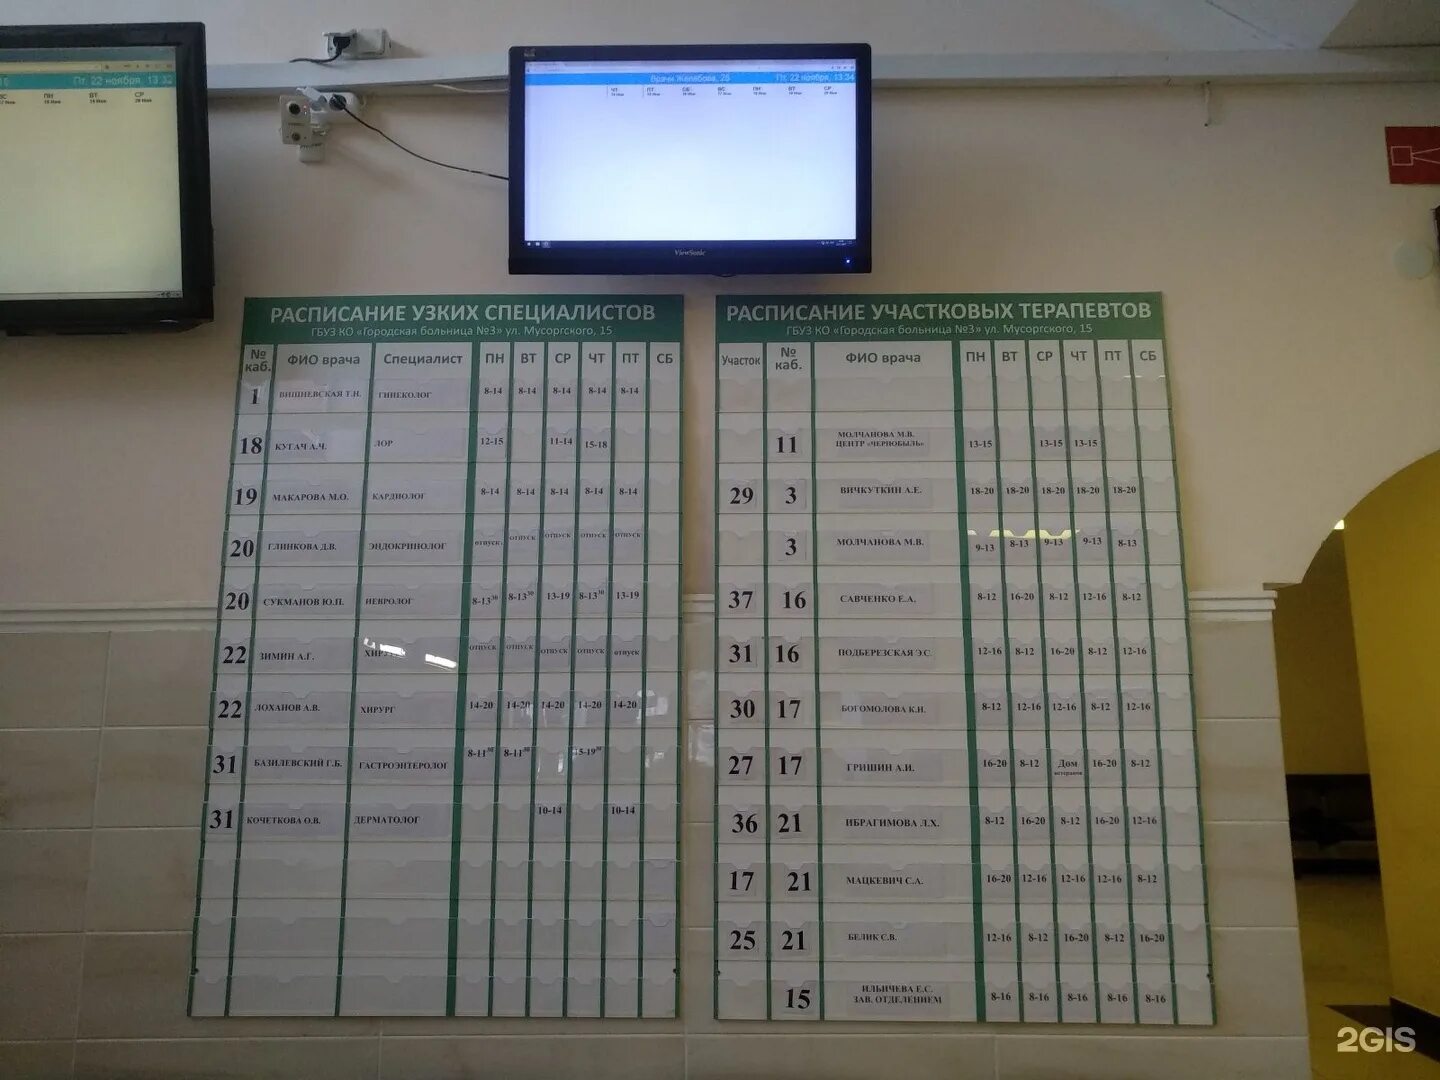 Пт, 22 ноября, 13:32
ВС ПН ВТ СР
Врачи Желябова, 25 Пт, 22 ноября, 13:34
ЧТ ПТ СБ ВС ПН ВТ СР
ViewSonic
РАСПИСАНИЕ УЗКИХ СПЕЦИАЛИСТОВ
ГБУЗ КО «Городская больница №3» ул. Мусоргского, 15
№ каб. ФИО врача Специалист ПН ВТ СР ЧТ ПТ СБ
1 ВИШНЕВСКАЯ Т.Н. ГИНЕКОЛОГ 8-14 8-14 8-14 8-14 8-14
18 КУГАЧ А.Ч. ЛОР 12-15 11-14 15-18
19 МАКАРОВА М.О. КАРДИОЛОГ 8-14 8-14 8-14 8-14 8-14
20 ГЛИНКОВА Д.В. ЭНДОКРИНОЛОГ отпуск отпуск отпуск отпуск отпуск
20 СУКМАНОВ Ю.П. НЕВРОЛОГ 8-13³⁰ 8-13³⁰ 13-19 8-13³⁰ 13-19
22 ЗИМИН А.Г. ХИРУРГ отпуск отпуск отпуск отпуск отпуск
22 ЛОХАНОВ А.В. ХИРУРГ 14-20 14-20 14-20 14-20 14-20
31 БАЗИЛЕВСКИЙ Г.Б. ГАСТРОЭНТЕРОЛОГ 8-11³⁰ 8-11³⁰ 15-19³⁰
31 КОЧЕТКОВА О.В. ДЕРМАТОЛОГ 10-14 10-14
РАСПИСАНИЕ УЧАСТКОВЫХ ТЕРАПЕВТОВ
ГБУЗ КО «Городская больница №3» ул. Мусоргского, 15
Участок № каб. ФИО врача ПН ВТ СР ЧТ ПТ СБ
11 МОЛЧАНОВА М.В. ЦЕНТР «ЧЕРНОБЫЛЬ» 13-15 13-15 13-15
29 3 ВИЧКУТКИН А.Е. 18-20 18-20 18-20 18-20 18-20
3 МОЛЧАНОВА М.В. 9-13 8-13 9-13 9-13 8-13
37 16 САВЧЕНКО Е.А. 8-12 16-20 8-12 12-16 8-12
31 16 ПОДБЕРЕЗСКАЯ Э.С. 12-16 8-12 16-20 8-12 12-16
30 17 БОГОМОЛОВА К.Н. 8-12 12-16 12-16 8-12 12-16
27 17 ГРИШИН А.И. 16-20 8-12 Дом ветеранов 16-20 8-12
36 21 ИБРАГИМОВА Л.Х. 8-12 16-20 8-12 16-20 12-16
17 21 МАЦКЕВИЧ С.А. 16-20 12-16 12-16 12-16 8-12
25 21 БЕЛИК С.В. 12-16 8-12 16-20 8-12 16-20
15 ИЛЬИЧЕВА Е.С. ЗАВ. ОТДЕЛЕНИЕМ 8-16 8-16 8-16 8-16 8-16
2GIS